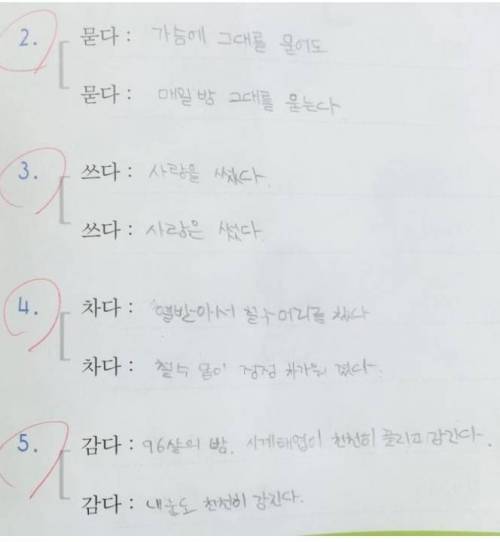 2.
묻다 : 가슴에 그대를 묻어도
묻다 : 매일 밤 그대를 묻는다
3.
쓰다 : 사랑을 썼다.
쓰다 : 사랑은 썼다.
4.
차다 : 열받아서 철수 머리를 찼다
차다 : 철수 몸이 점점 차가워 졌다.
5.
감다 : 96살의 밤. 시계태엽이 천천히 풀리고 감긴다.
감다 : 내 눈도 천천히 감긴다.